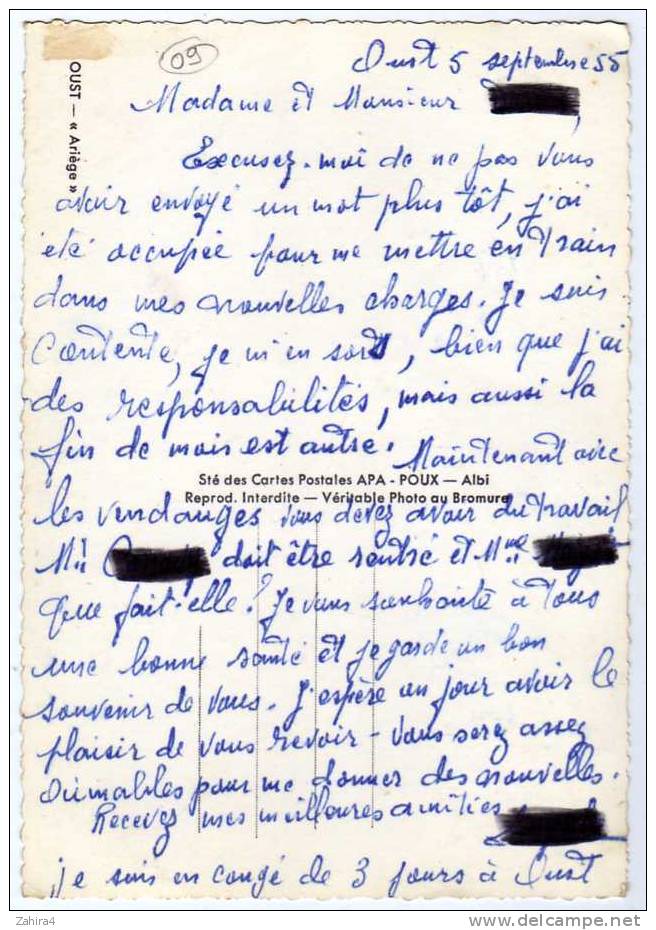 09
OUST — « Ariège »
Oust 5 septembre 55
Madame et Monsieur
Excusez-moi de ne pas vous
avoir envoyé un mot plus tôt, j'ai
été occupée pour me mettre en train
dans mes nouvelles charges. Je suis
Contente, je m'en sors, bien que j'ai
des responsabilités, mais aussi la
fin de mois est autre. Maintenant avec
Sté des Cartes Postales APA - POUX — Albi
Reprod. Interdite — Véritable Photo au Bromure
les vendanges vous devez avoir du travail
doit être rentré et Mme
que fait-elle? Je vous souhaite à tous
une bonne santé et je garde un bon
souvenir de vous. J'espère un jour avoir le
plaisir de vous revoir - Vous serez assez
aimables pour me donner des nouvelles.
Recevez mes meilleures amitiés
je suis en congé de 3 jours à Oust
Zahira4
delcampe.net